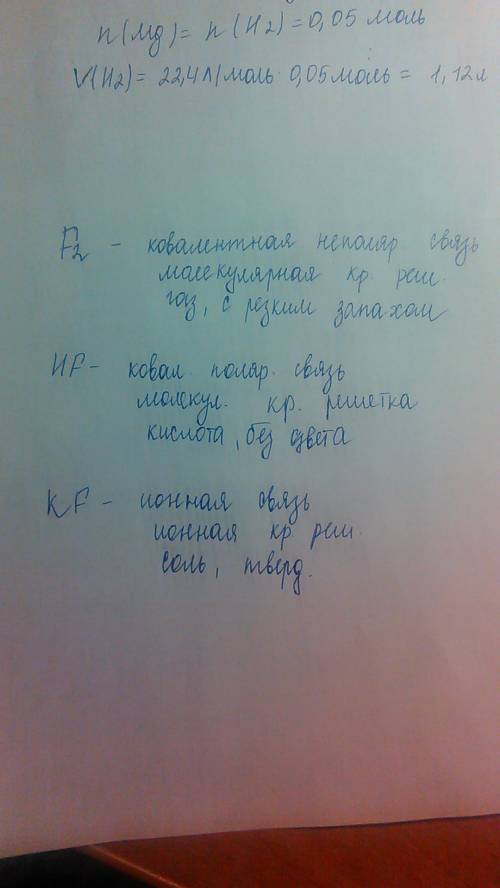 n(Mg) = n(H2) = 0,05 моль
V(H2) = 22,4 л/моль · 0,05 моль = 1,12 л
F2 - ковалентная неполяр. связь
молекулярная кр. реш.
газ, с резким запахом
HF - ковал. поляр. связь
молекул. кр. решетка
кислота, без цвета
KF - ионная связь
ионная кр. реш.
соль, тверд.